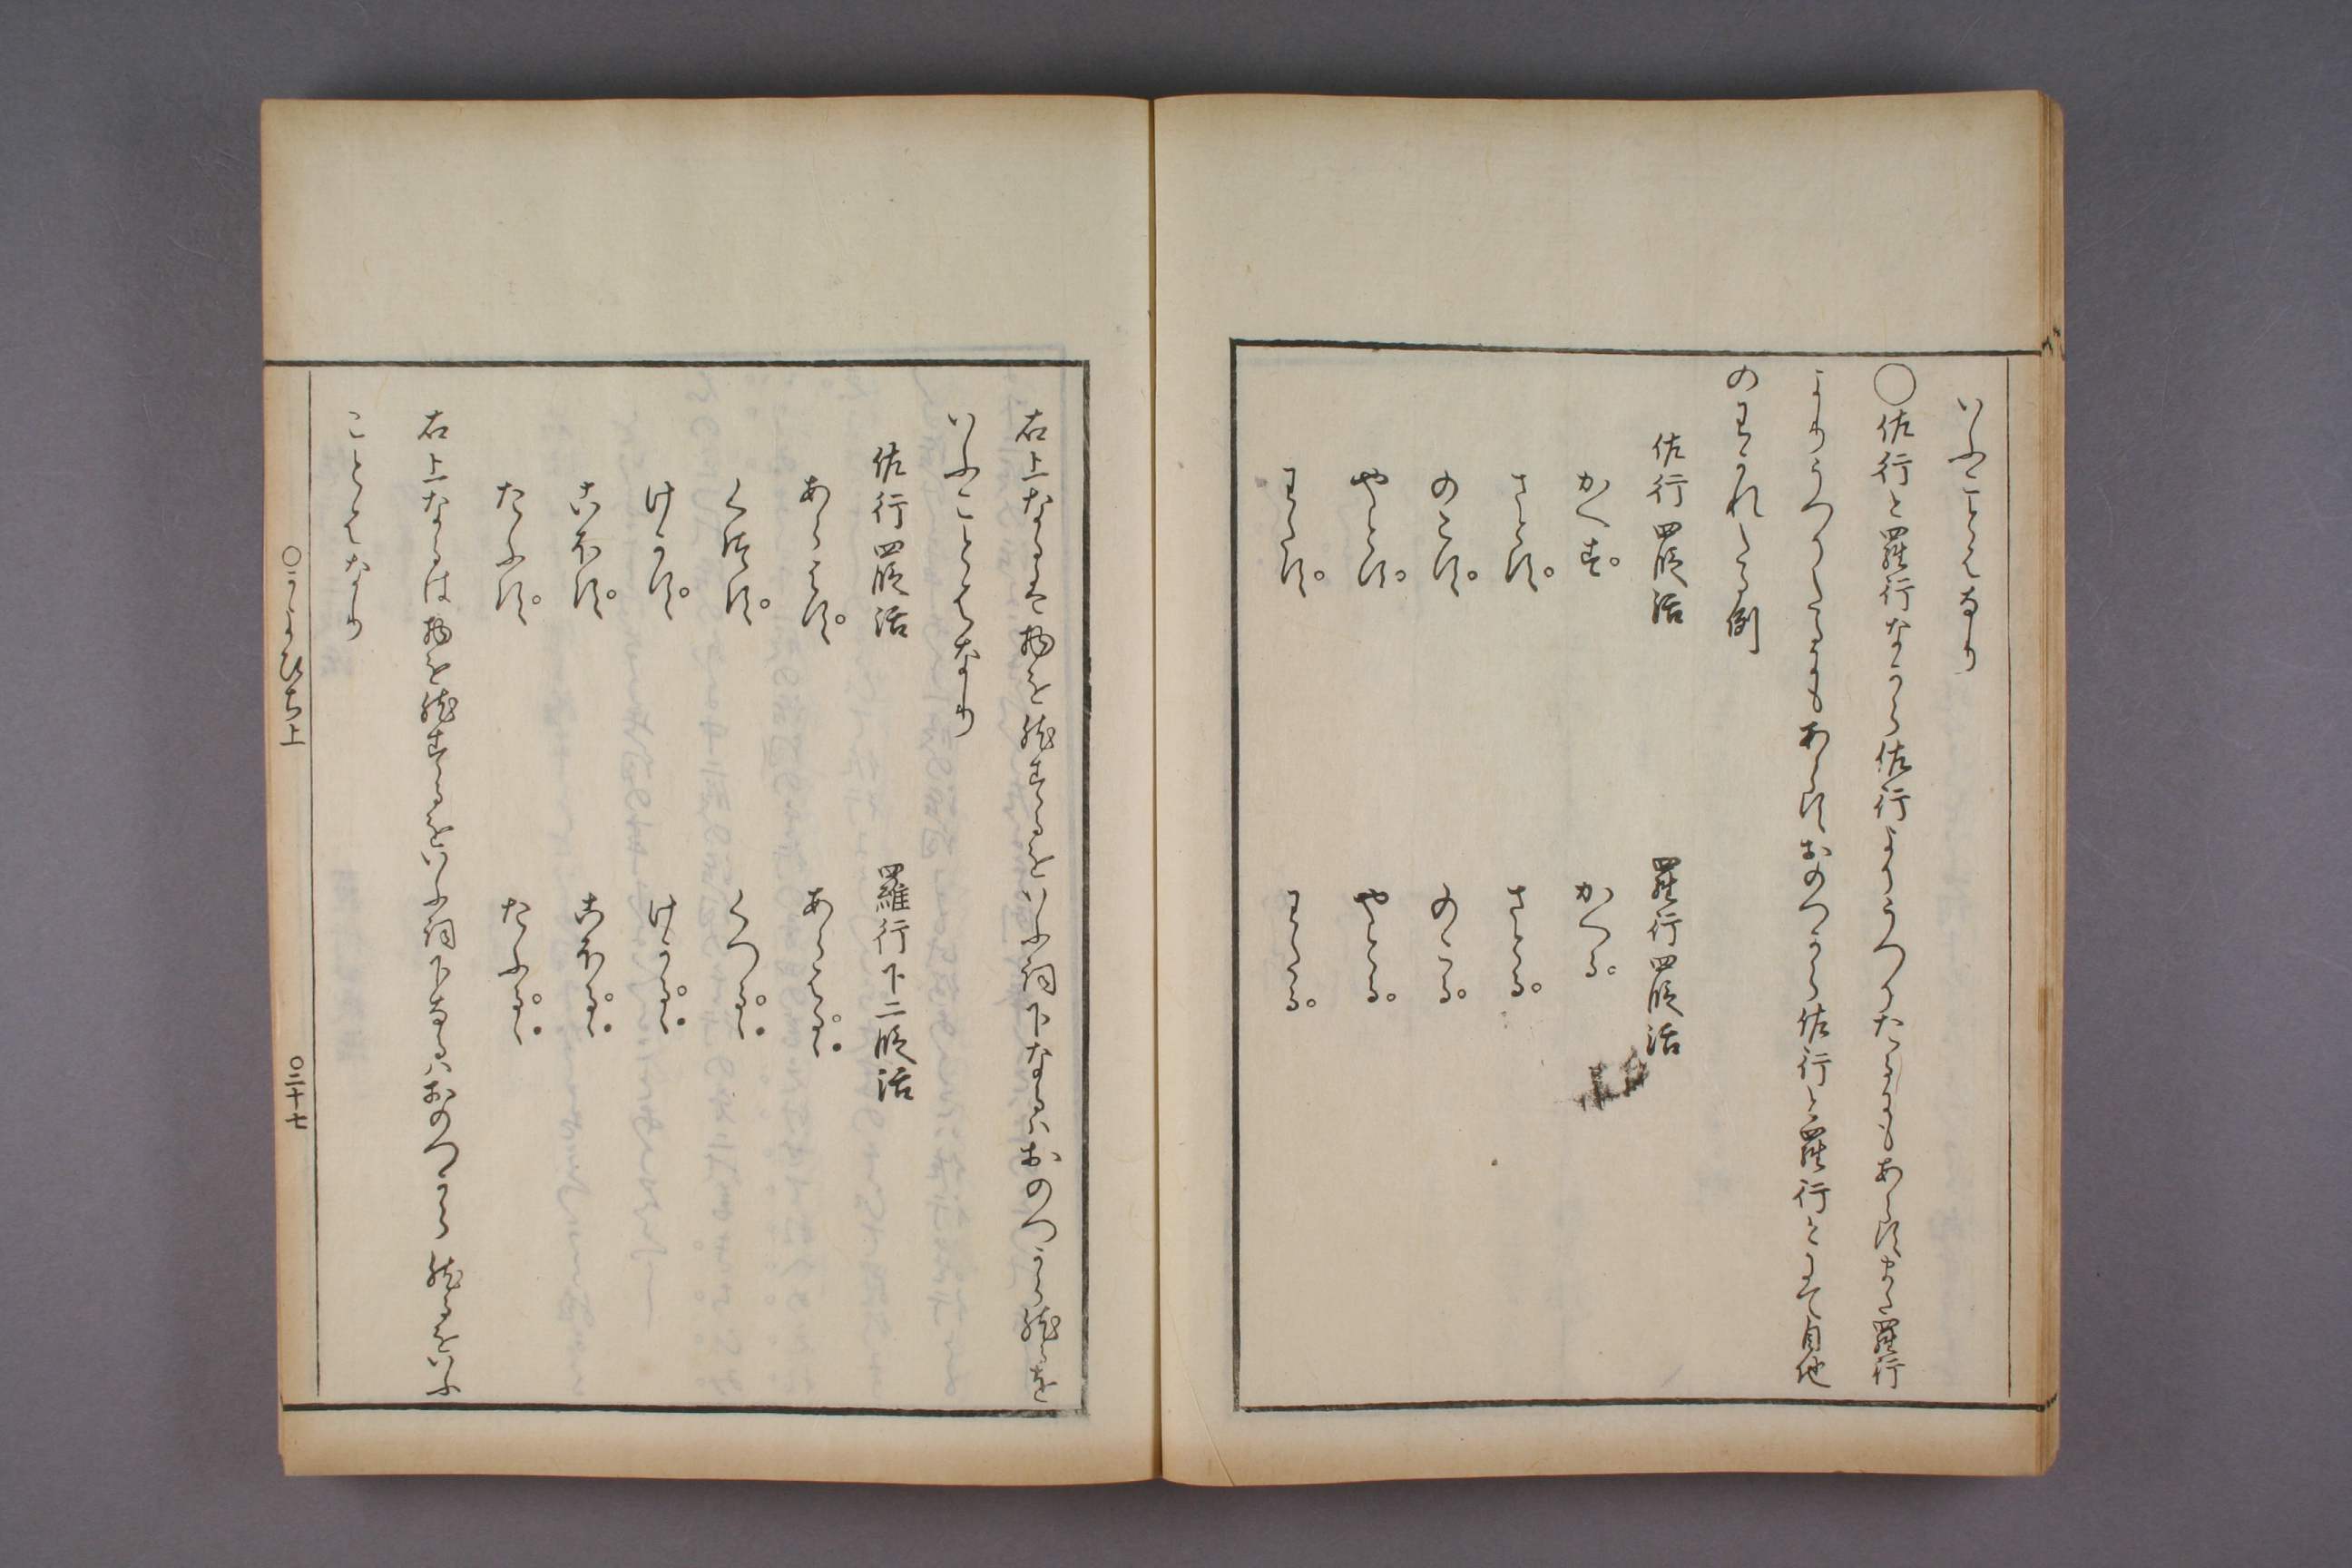 いふことはなり
○佐行と羅行なから佐行よりうつりたるもあらすまた羅行
よりうつりたるにもあらすおのつから佐行と羅行とにて自他
のわかれたる例
佐行四段活 羅行四段活
かへす。 かへる。
さとす。 さとる。
のこす。 のこる。
やとす。 やとる。
わたす。 わたる。
右上なるは物を然するをいふ詞下なるはおのつから然るを
いふことはなり
佐行四段活 羅行下二段活
あらはす。 あらはるゝ
くつす。 くつるゝ
けかす。 けかるゝ
こほす。 こほるゝ
たふす。 たふるゝ
右上なるは物を然するをいふ詞下なるはおのつから然るをいふ
ことはなり
○かよひち上 ○三十七